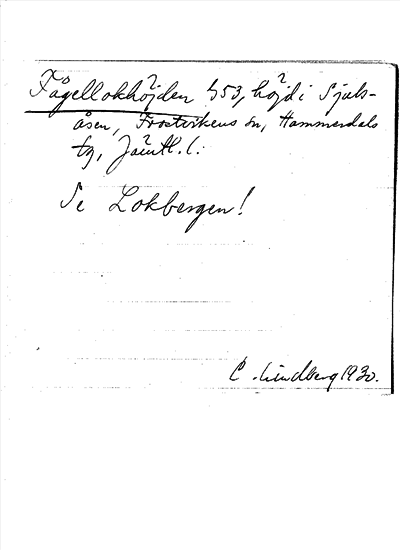 Fågellokhöjden 553, höjd i Sjuls-
åsen, Frostvikens sn, Hammerdals
tg, Jämtl. l.
Se Lokbergen!
C. Lindberg 1930.